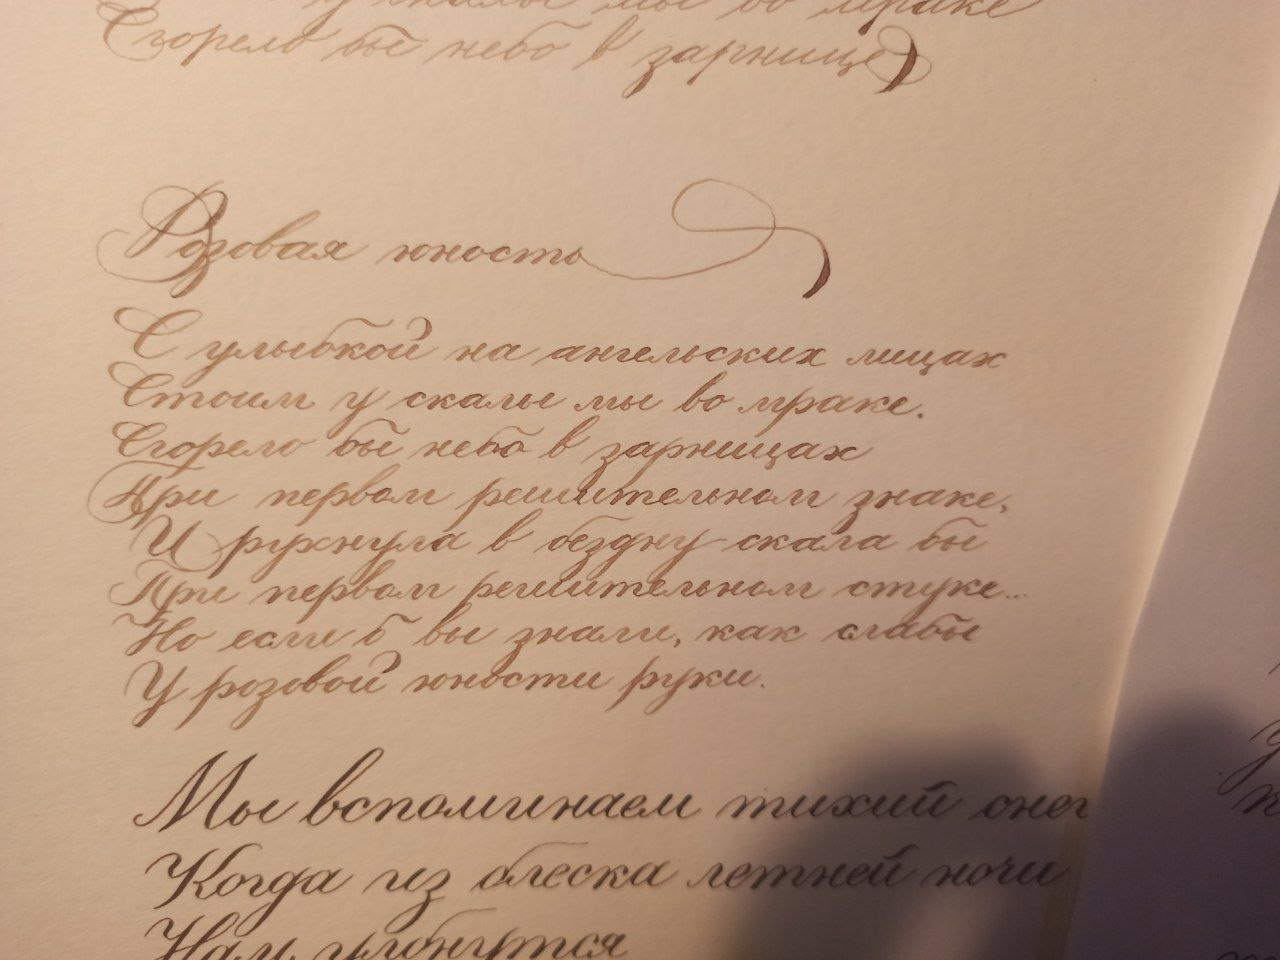 у скалы мы во мраке
Сгорело бы небо в зарнице
Розовая юность
С улыбкой на ангельских лицах
Стоим у скалы мы во мраке.
Сгорело бы небо в зарницах
При первом решительном знаке,
И рухнула в бездну скала бы
При первом решительном стуке...
Но если б вы знали, как слабы
У розовой юности руки.
Мы вспоминаем тихий снег
Когда из блеска летней ночи
Нам улыбнутся